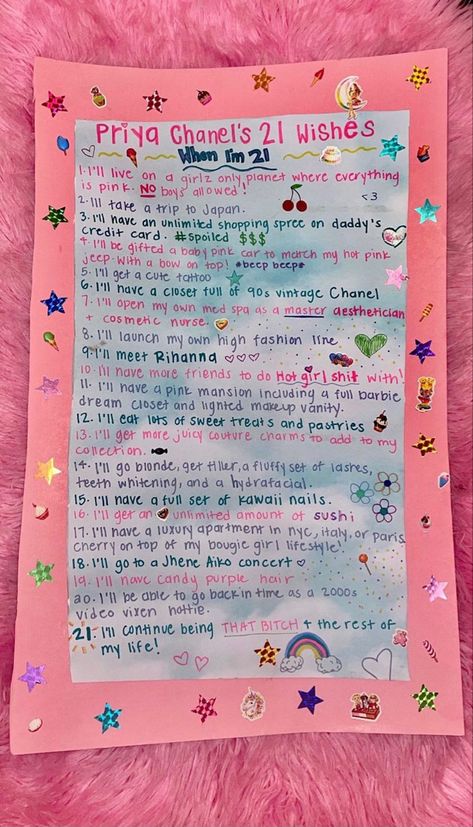 Priya Chanel's 21 Wishes
When I'm 21
1. I'll live on a girlz only planet where everything
is pink. NO boys allowed!
2. I'll take a trip to Japan. <3
3. I'll have an unlimited shopping spree on daddy's
credit card. #spoiled $$$
4. I'll be gifted a baby pink car to match my hot pink
jeep. With a bow on top! *beep beep*
5. I'll get a cute tattoo
6. I'll have a closet full of 90s vintage Chanel
7. I'll open my own med spa as a master aesthetician
+ cosmetic nurse.
8. I'll launch my own high fashion line.
9. I'll meet Rihanna
10. I'll have more friends to do Hot girl shit with!
11. I'll have a pink mansion including a full barbie
dream closet and lighted makeup vanity.
12. I'll eat lots of sweet treats and pastries
13. I'll get more juicy couture charms to add to my
collection.
14. I'll go blonde, get filler, a fluffy set of lashes,
teeth whitening, and a hydrafacial.
15. I'll have a full set of Kawaii nails.
16. I'll get an unlimited amount of sushi
17. I'll have a luxury apartment in nyc, italy, or paris.
cherry on top of my bougie girl lifestyle!
18. I'll go to a Jhene Aiko concert
19. I'll have candy purple hair
20. I'll be able to go back in time as a 2000s
video vixen hottie.
21. I'll continue being THAT BITCH & the rest of
my life!